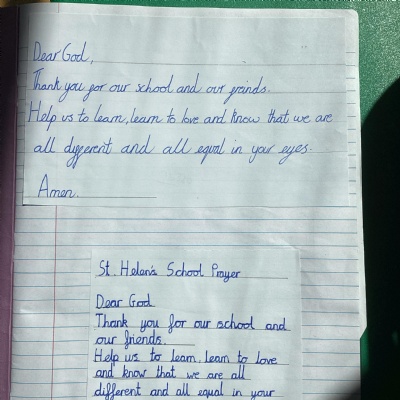 Dear God,
Thank you for our school and our freinds.
Help us to learn, learn to love and know that we are
all different and all equal in your eyes.
Amen.
St. Helen's School Prayer
Dear God
Thank you for our school and
our friends.
Help us to learn, learn to love
and know that we are all
different and all equal in your